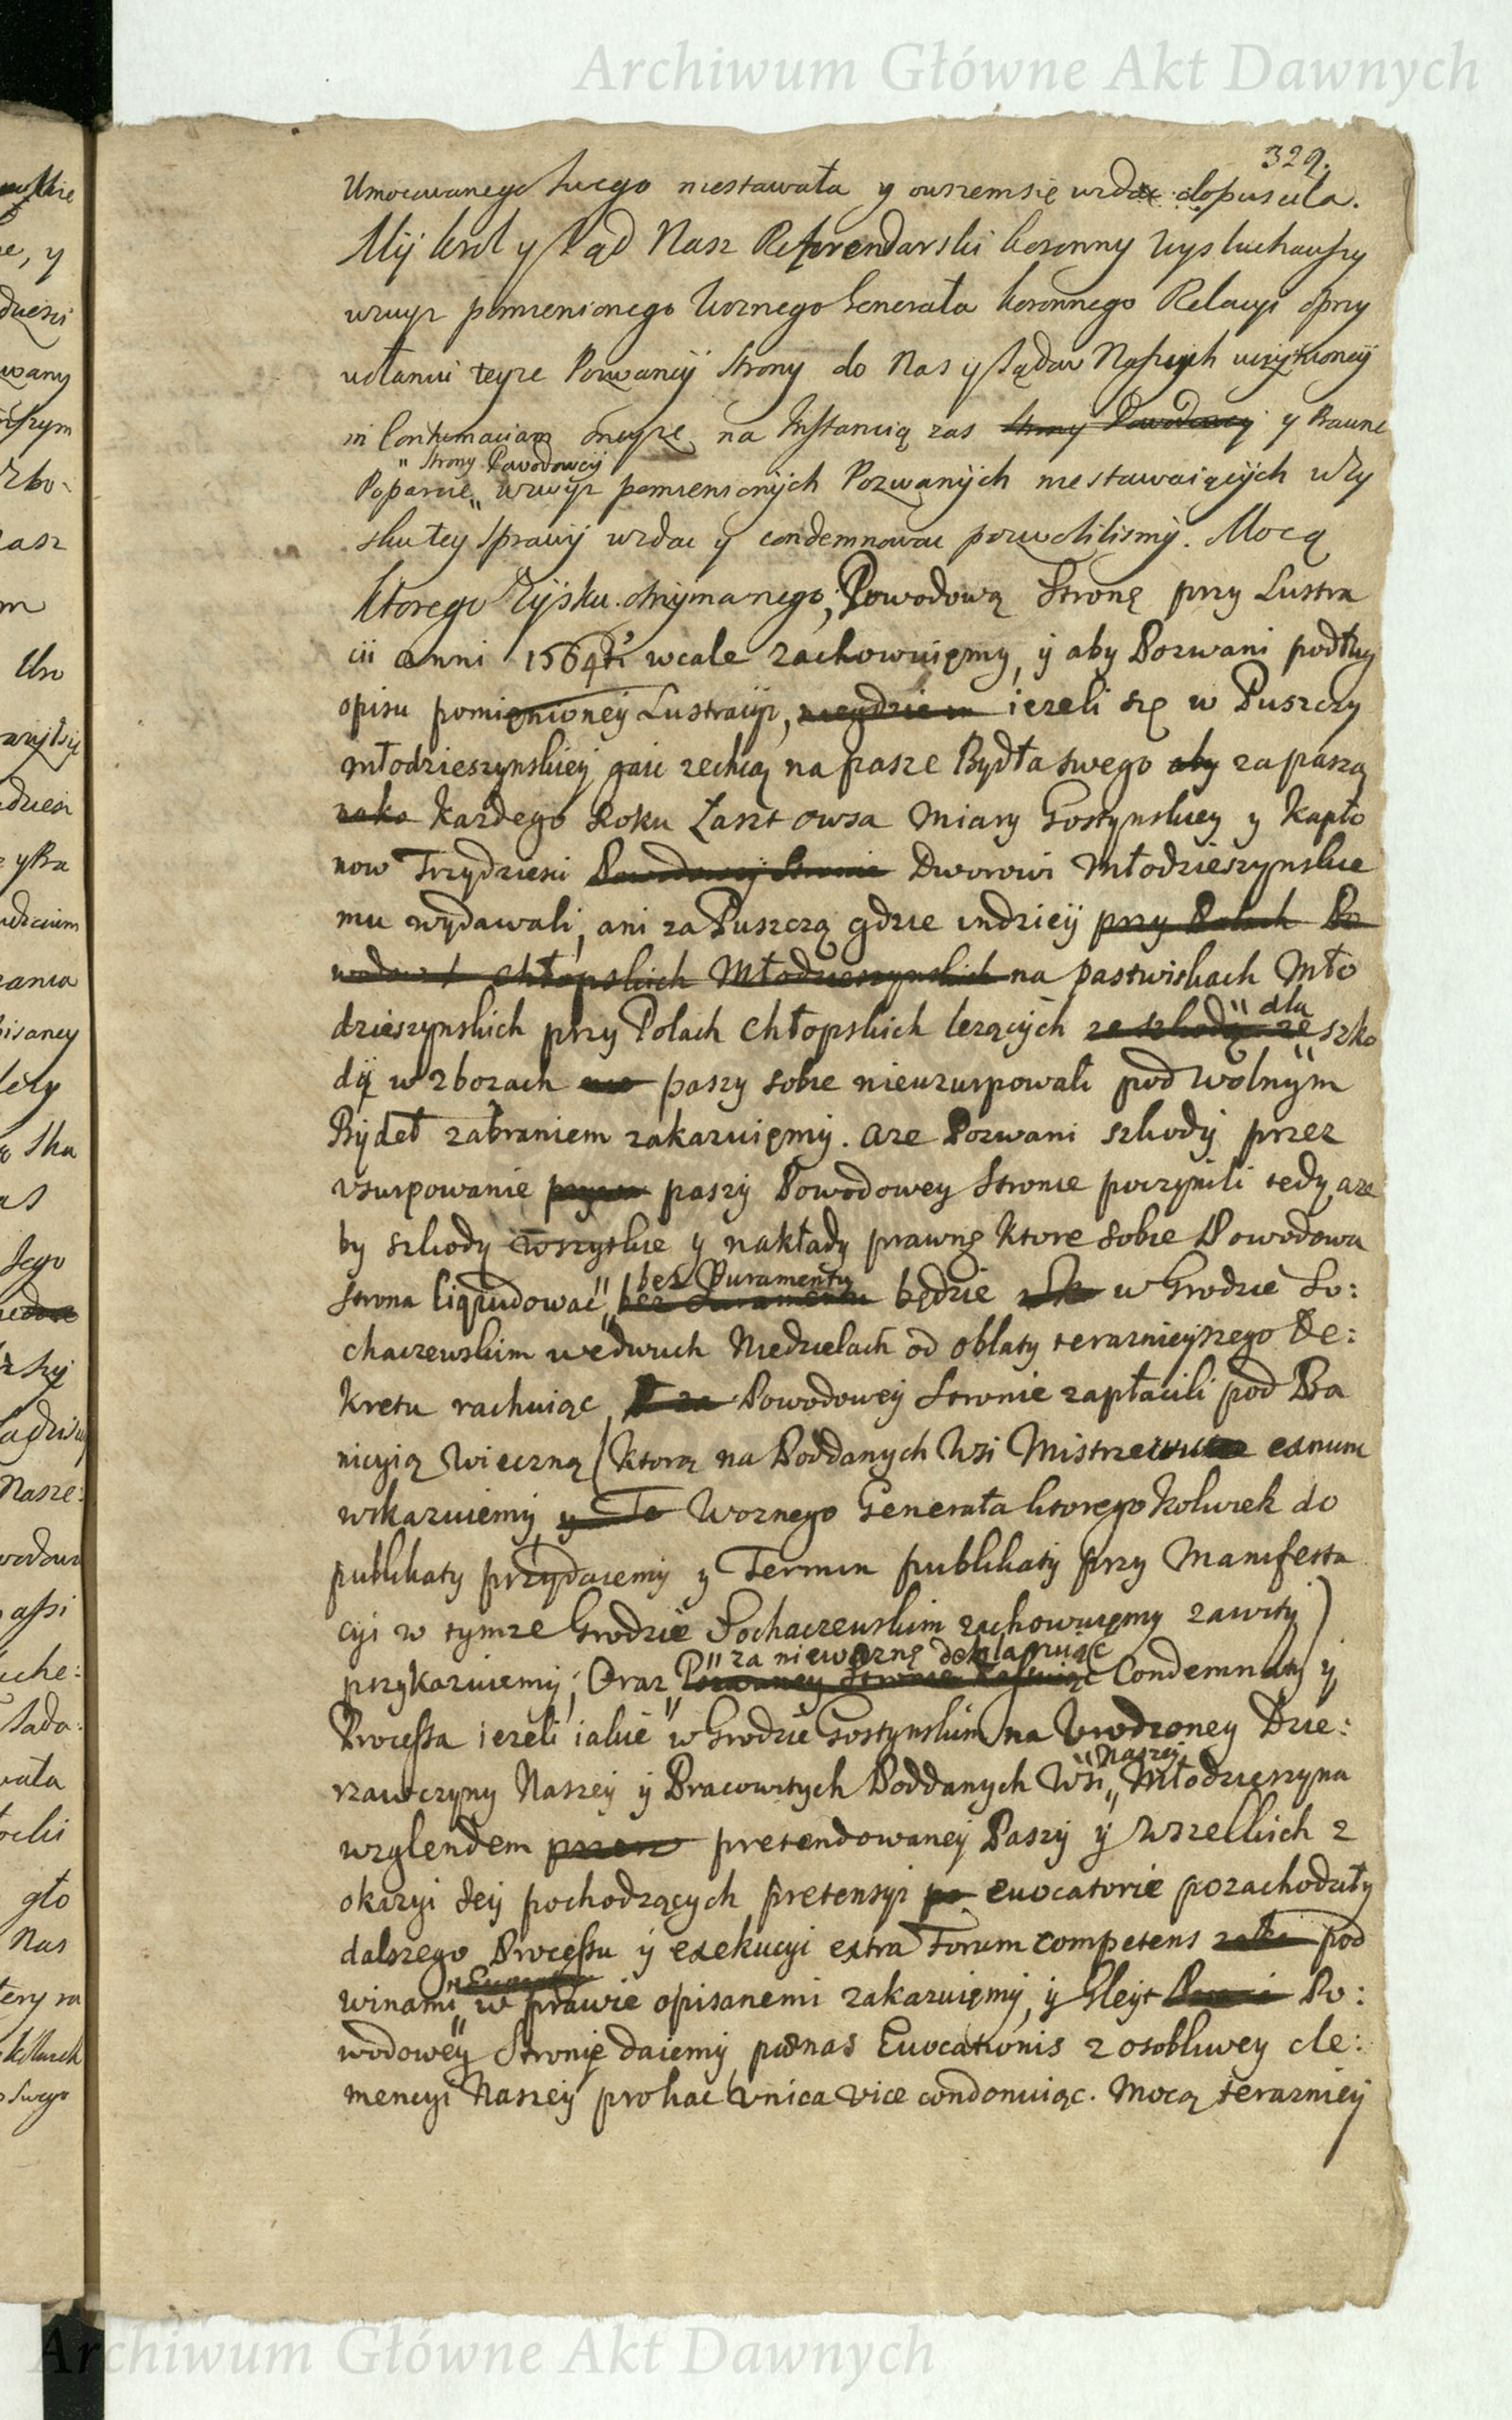 Archiwum Główne Akt Dawnych
329.
Umocowanego swego niestawała y owszem się wzdac dopusciła.
My Krol y Sąd Nasz Referendarski Koronny Wysłuchawszy
wzwyz pomienionego Woznego Generała Koronnego Relacyi o przy
wołaniu teyze Pozwaney Strony do Nas y Sądow Naszych uczynioney
in Contumaciam oneyze, na Instancią zas Strony Powodowey y Prawne
" Strony Powodowey
Poparcie " wzwyz pomienionych Pozwanych niestawaiących w Zy
sku tey Sprawy wzdac y condemnowac pozwolilismy. Mocą
ktorego Zysku otrzymanego, Powodową Stronę przy Lustra
cii anni 1564ti wcale zachowuięmy, y aby Pozwani podług
opisu pomienioney Lustracyi, ieżeli się w Puszczy
Młodzieszynskiey paść zechcą na pasze Bydła swego aby za paszą
każdego Roku Łaszt owsa Miary Gostynskiey y Kapło
now Trzydziesci Powodowey Stronie Dworowi Młodzieszynskie
mu wydawali, ani za Puszczą gdzie indziey przy Polach Po
wodowych chłopskich Młodzieszynskich na pastwiskach Mło
dzieszynskich przy Polach chłopskich leżących ze szkodą ze szko
" dla
dy w zbożach paszy sobie nieuzurpowali pod wolnym
Bydeł zabraniem zakazuięmy. a że Pozwani szkody przez
vzurpowanie paszy Powodowey Stronie poczynili tedy, aże
by szkody wszystkie y nakłady prawne ktore sobie Powodowa
bez Juramentu
Strona liquidować " bez Juramentu będzie w Grodzie So:
chaczewskim we dwuch Niedzielach od oblaty teraznieyszego De:
kretu rachuiąc, Powodowey Stronie zapłacili pod Ba
nicyią Wieczną (ktorą na Poddanych Wsi Mistrzewic exnunc
wskazuiemy y To Woznego Generała ktorego kolwiek do
publikaty przydaiemy y Termin publikaty przy Manifesta
cyi w tymze Grodzie Sochaczewskim zachowuięmy zawity)
" za nieważnę deklaruiąc
przykazuiemy; Oraz " Pozwaney Stronie Kassuiąc Condemnaty y
Processa ieżeli iakie w Grodzie Gostynskim na Urodzoney Dzie:
rzawczyny Naszey y Pracowitych Poddanych Wsi " Młodzieszyna
" Naszey
wzglendem pretendowaney Paszy y wszelkich z
okazyi Jey pochodzących pretensyi evocatorie pozachodziły
dalszego Processu y exekucyi extra Forum competens pod
winami " w prawie opisanemi zakazuięmy, y Gleyt Po:
wodowey Stronię daiemy, pœnas Euocationis z osobliwey cle:
mencyi Naszey pro hac vnica vice condonuiąc. Mocą teraznieỹ
Archiwum Główne Akt Dawnych